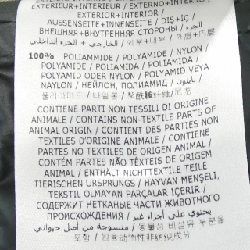 EXTERIEUR+INTERIEUR / EXTERNO+INTERNO /
EXTERIOR+INTERIOR /
AUSSENSEITE+INNENSEITE / DIŞ+İÇ /
ВНЕШНЯЯ+ВНУТРЕННЯЯ СТОРОНЫ /
100% POLIAMMIDE / POLYAMIDE / NYLON /
POLYAMIDE / POLIAMIDA / POLIAMIDA /
POLYAMID ODER NYLON / POLYAMID VEYA
NAYLON / НЕЙЛОН, ПОЛИАМИД /
CONTIENE PARTI NON TESSILI DI ORIGINE
ANIMALE / CONTAINS NON-TEXTILE PARTS OF
ANIMAL ORIGIN / CONTIENT DES PARTIES NON
TEXTILES D'ORIGINE ANIMALE / CONTIENE
PARTES NO TEXTILES DE ORIGEN ANIMAL /
CONTÉM PARTES NÃO TÊXTEIS DE ORIGEM
ANIMAL / ENTHÄLT NICHTTEXTILE TEILE
TIERISCHEN URSPRUNGS / HAYVAN MENŞELİ,
TEKSTİL OLMAYAN PARÇALAR İÇERİR /
СОДЕРЖИТ НЕТКАНЫЕ ЧАСТИ ЖИВОТНОГО
ПРОИСХОЖДЕНИЯ /